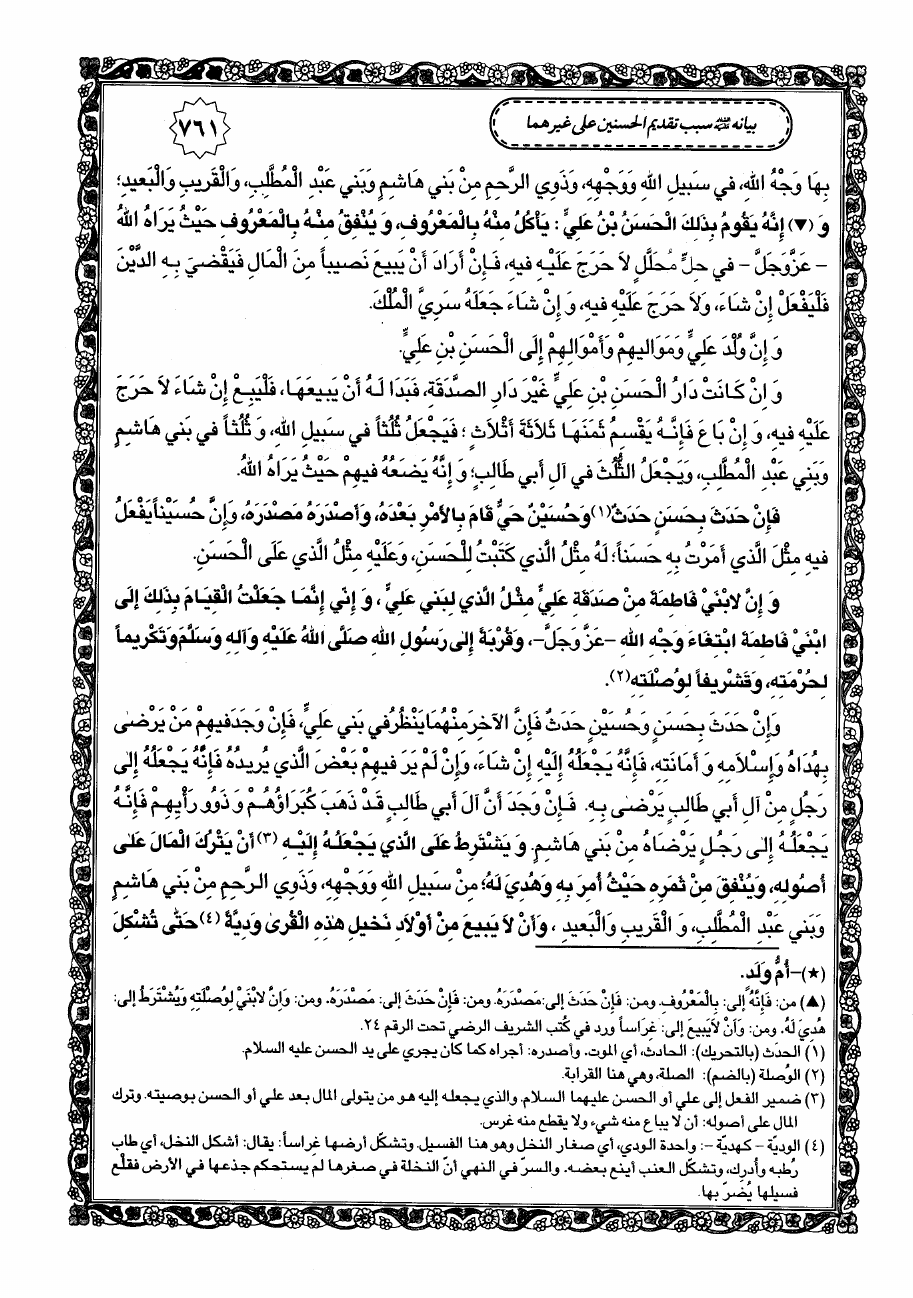 بيانه ﷺ سبب تقديم الحسنين على غيرهما
٧٦١
بِهَا وَجْهُ اللهِ، في سَبيلِ اللهِ وَوَجْهِهِ، وَذَوِي الرَّحِمِ مِنْ بَني هَاشِمٍ وَبَني عَبْدِ الْمُطَّلِبِ، وَالْقَريبِ وَالْبَعيدِ؛
وَ (▼) إِنَّهُ يَقُومُ بِذَلِكَ الْحَسَنُ بْنُ عَلِيٍّ : يَأْكُلُ مِنْهُ بِالْمَعْرُوفِ، وَ يُنْفِقُ مِنْهُ بِالْمَعْرُوفِ حَيْثُ يَرَاهُ اللهُ
- عَزَّوَجَلَّ - في حِلٍّ مُحَلَّلٍ لاَ حَرَجَ عَلَيْهِ فيهِ، فَإِنْ أَرَادَ أَنْ يَبيعَ نَصيباً مِنَ الْمَالِ فَيَقْضِيَ بِهِ الدَّيْنَ
فَلْيَفْعَلْ إِنْ شَاءَ، وَلاَ حَرَجَ عَلَيْهِ فيهِ، وَ إِنْ شَاءَ جَعَلَهُ سَرِيَّ الْمُلْكِ.
وَ إِنَّ وُلْدَ عَلِيٍّ وَمَوَاليهِمْ وَأَمْوَالِهِمْ إِلَى الْحَسَنِ بْنِ عَلِيٍّ.
وَ إِنْ كَانَتْ دَارُ الْحَسَنِ بْنِ عَلِيٍّ غَيْرَ دَارِ الصَّدَقَةِ، فَبَدَا لَهُ أَنْ يَبيعَهَا، فَلْيَبِعْ إِنْ شَاءَ لاَ حَرَجَ
عَلَيْهِ فيهِ، وَ إِنْ بَاعَ فَإِنَّهُ يَقْسِمُ ثَمَنَهَا ثَلاَثَةَ أَثْلاَثٍ ؛ فَيَجْعَلُ ثُلُثاً في سَبيلِ اللهِ، وَ ثُلُثاً في بَني هَاشِمٍ
وَبَني عَبْدِ الْمُطَّلِبِ، وَيَجْعَلُ الثُّلُثَ في آلِ أَبي طَالِبٍ؛ وَ إِنَّهُ يَضَعُهُ فيهِمْ حَيْثُ يَرَاهُ اللهُ.
فَإِنْ حَدَثَ بِحَسَنٍ حَدَثٌ(١) وَحُسَيْنٌ حَيٌّ قَامَ بِالأَمْرِ بَعْدَهُ، وَأَصْدَرَهُ مَصْدَرَهُ، وَإِنَّ حُسَيْناً يَفْعَلُ
فيهِ مِثْلَ الَّذي أَمَرْتُ بِهِ حَسَناً؛ لَهُ مِثْلُ الَّذي كَتَبْتُ لِلْحَسَنِ، وَعَلَيْهِ مِثْلُ الَّذي عَلَى الْحَسَنِ.
وَ إِنَّ لاِبْنَيْ فَاطِمَةَ مِنْ صَدَقَةِ عَلِيٍّ مِثْلُ الَّذي لِبَني عَلِيٍّ ، وَ إِنّي إِنَّمَا جَعَلْتُ الْقِيَامَ بِذَلِكَ إِلَى
ابْنَيْ فَاطِمَةَ ابْتِغَاءَ وَجْهِ اللهِ -عَزَّ وَجَلَّ-، وَقُرْبَةً إِلى رَسُولِ اللهِ صَلَّى اللهُ عَلَيْهِ وَآلِهِ وَسَلَّمَ وَتَكْريماً
لِحُرْمَتِهِ، وَتَشْريفاً لِوُصْلَتِهِ(٢).
وَإِنْ حَدَثَ بِحَسَنٍ وَحُسَيْنٍ حَدَثٌ فَإِنَّ الآخِرَ مِنْهُمَا يَنْظُرُ في بَني عَلِيٍّ، فَإِنْ وَجَدَ فيهِمْ مَنْ يَرْضى
بِهُدَاهُ وَإِسْلاَمِهِ وَ أَمَانَتِهِ، فَإِنَّهُ يَجْعَلُهُ إِلَيْهِ إِنْ شَاءَ، وَإِنْ لَمْ يَرَ فيهِمْ بَعْضَ الَّذي يُريدُهُ فَإِنَّهُ يَجْعَلُهُ إِلى
رَجُلٍ مِنْ آلِ أَبي طَالِبٍ يَرْضى بِهِ. فَإِنْ وَجَدَ أَنَّ آلَ أَبي طَالِبٍ قَدْ ذَهَبَ كُبَرَاؤُهُمْ وَ ذَوُو رَأْيِهِمْ فَإِنَّهُ
يَجْعَلُهُ إِلى رَجُلٍ يَرْضَاهُ مِنْ بَني هَاشِمٍ. وَ يَشْتَرِطُ عَلَى الَّذي يَجْعَلُهُ إِلَيْهِ (٣) أَنْ يَتْرُكَ الْمَالَ عَلى
أُصُولِهِ، وَيُنْفِقَ مِنْ ثَمَرِهِ حَيْثُ أُمِرَ بِهِ وَهُدِيَ لَهُ؛ مِنْ سَبيلِ اللهِ وَوَجْهِهِ، وَذَوِي الرَّحِمِ مِنْ بَني هَاشِمٍ
وَبَني عَبْدِ الْمُطَّلِبِ، وَ الْقَريبِ وَالْبَعيدِ ، وَأَنْ لاَ يَبيعَ مِنْ أَوْلاَدِ نَخيلِ هذِهِ الْقُرى وَدِيَّةً (٤) حَتّى تُشْكِلَ
(★)-أُمُّ وَلَد.
(▲) من: فَإِنَّهُ إلى: بِالْمَعْرُوفِ. ومن: فَإِنْ حَدَثَ إلى:مَصْدَرَهُ. ومن: فَإِنْ حَدَثَ إلى: مَصْدَرَهُ. ومن: وَإِنَّ لاِبْنَيْ لِوُصْلَتِهِ وَيُشْتَرَطُ إلى:
هُدِيَ لَهُ. ومن: وَأَنْ لاَيَبيعَ إلى: غِرَاساً ورد في كُتب الشريف الرضي تحت الرقم ٢٤.
(١) الحدَث (بالتحريك): الحادث، أي الموت. وأصدره: أجراه كما كان يجري على يد الحسن عليه السلام.
(٢) الوُصلة (بالضم): الصلة، وهي هنا القرابة.
(٣) ضمير الفعل إلى علي أو الحسن عليهما السلام. والذي يجعله إليه هو من يتولى المال بعد علي أو الحسن بوصيته. وترك
المال على أصوله: أن لا يباع منه شيء، ولا يقطع منه غرس.
(٤) الوديّة - كهديّة -: واحدة الودي، أي صغار النخل وهو هنا الفسيل. وتشكّل أرضها غراساً: يقال: أشكل النخل، أي طاب
رُطبه وأدرك، وتشكّل العنب أينع بعضه. والسرّ في النهي أنّ النخلة في صغرها لم يستحكم جذعها في الأرض فقلع
فسيلها يُضرّ بها.